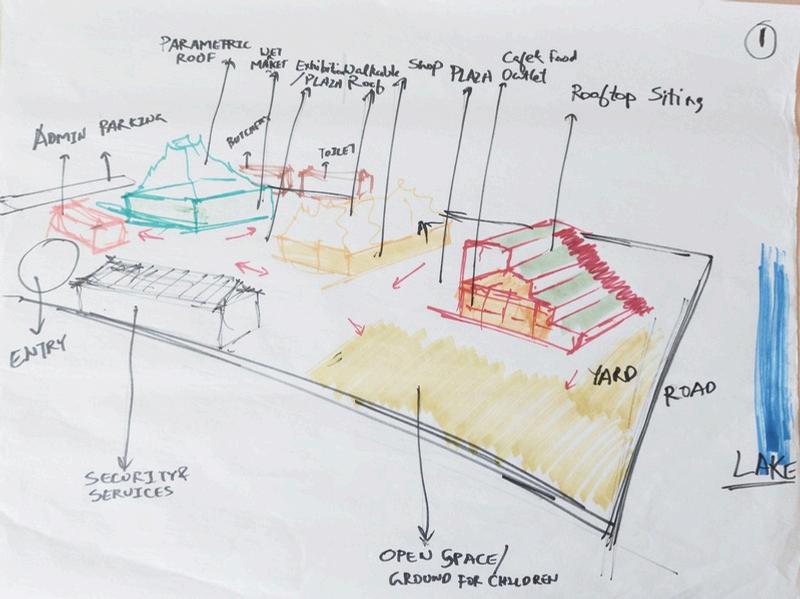 1
PARAMETRIC
ROOF
WET
MAKET
Exhibition
/PLAZA
Walkable
Roof
Shop
PLAZA
Cafe & Food
Outlet
Rooftop Siting
ADMIN
PARKING
BUTCHERY
TOILET
ENTRY
YARD
ROAD
LAKE
SECURITY &
SERVICES
OPEN SPACE/
GROUND FOR CHILDREN